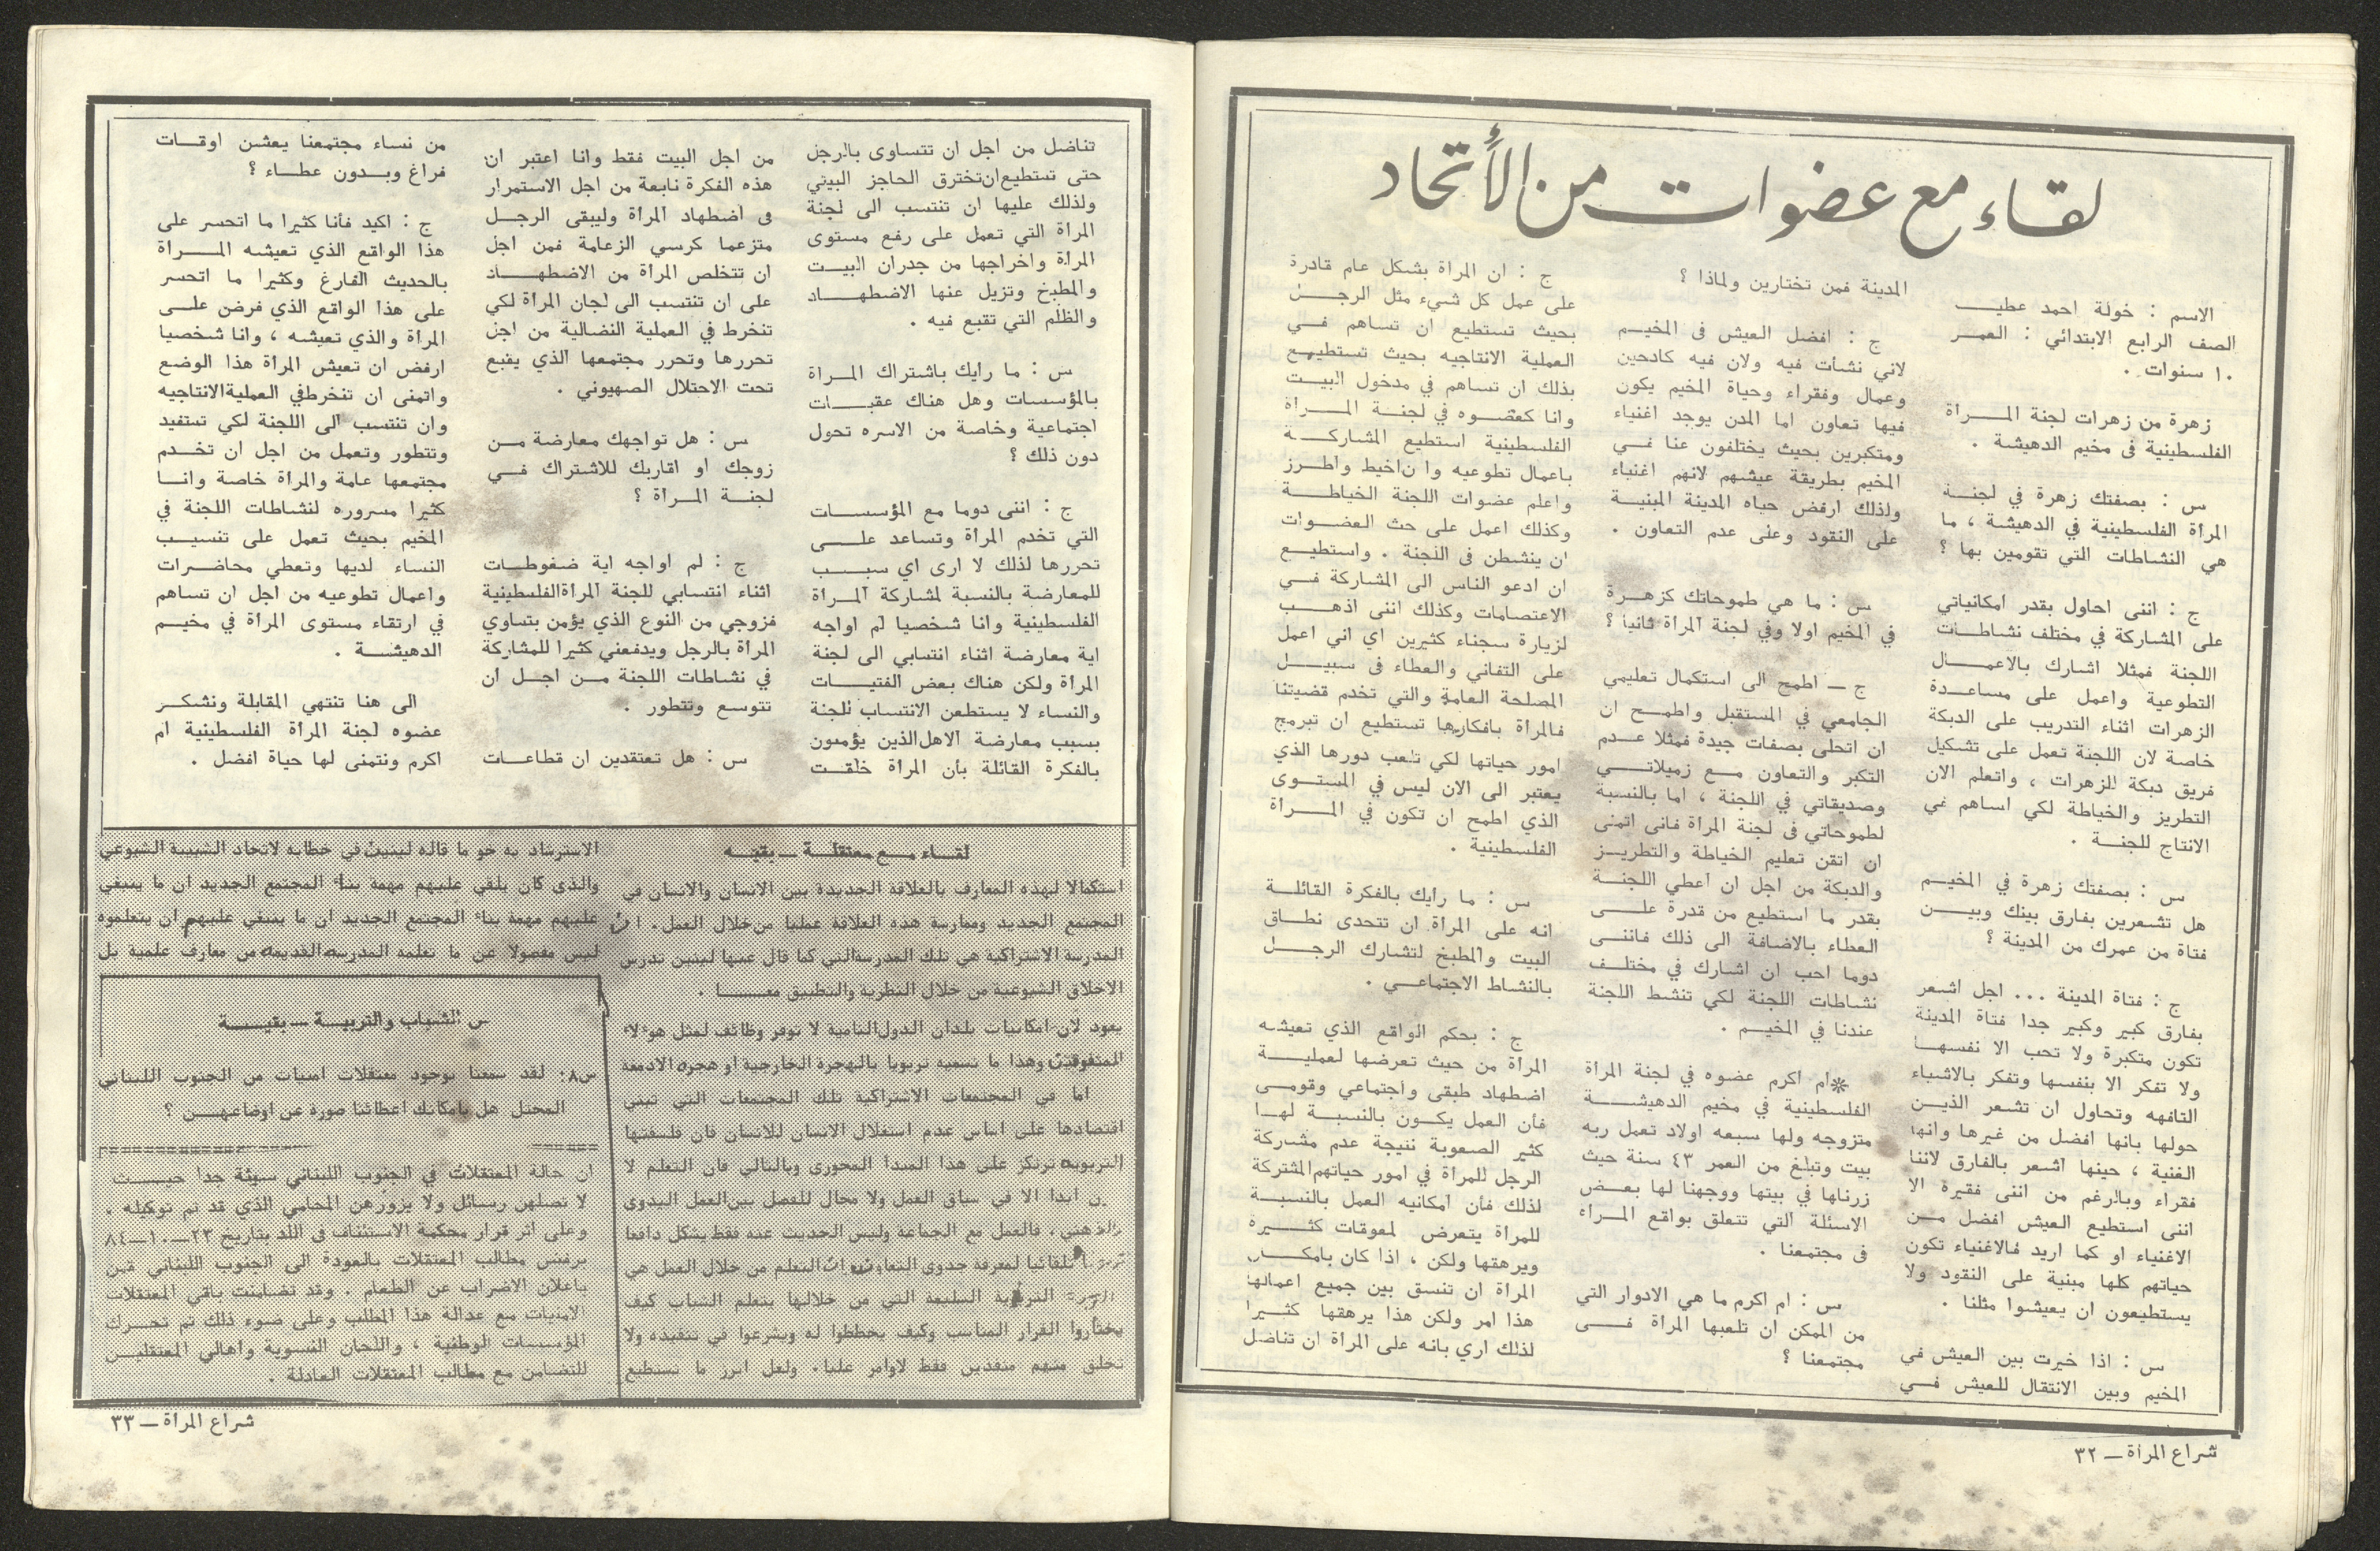 لقاء مع عضوات من الأتحاد
الاسم : خولة احمد عطيــــ
الصف الرابع الابتدائي : العمــر
١٠ سنوات .
زهرة من زهرات لجنة المــرأة
الفلسطينية فى مخيم الدهيشة .
س : بصفتك زهرة في لجنــة
المرأة الفلسطينية في الدهيشة ، ما
هي النشاطات التي تقومين بها ؟
ج : اننى احاول بقدر امكانياتي
على المشاركة في مختلف نشاطـات
اللجنة فمثلا اشارك بالاعمــال
التطوعية واعمل على مساعــدة
الزهرات اثناء التدريب على الدبكة
خاصة لان اللجنة تعمل على تشكيل
فريق دبكة للزهرات ، واتعلم الان
التطريز والخياطة لكي اساهم في
الانتاج للجنــة .
س : بصفتك زهرة في المخيــم
هل تشعرين بفارق بينك وبيــن
فتاة من عمرك من المدينة ؟
ج : فتاة المدينة ... اجل اشعر
بفارق كبير وكبير جدا فتاة المدينة
تكون متكبرة ولا تحب الا نفسهـا
ولا تفكر الا بنفسها وتفكر بالاشياء
التافهه وتحاول ان تشعر الذيــن
حولها بانها افضل من غيرها وانها
الغنية ، حينها اشعر بالفارق لاننا
فقراء وبالرغم من اننى فقيرة الا
اننى استطيع العيش افضل مــن
الاغنياء او كما اريد فالاغنياء تكون
حياتهم كلها مبنية على النقود ولا
يستطيعون ان يعيشوا مثلنا .
س : اذا خيرت بين العيش في
المخيم وبين الانتقال للعيش فــي
المدينة فمن تختارين ولماذا ؟
ج : افضل العيش فى المخيــم
لاني نشأت فيه ولان فيه كادحين
وعمال وفقراء وحياة المخيم يكون
فيها تعاون اما المدن يوجد اغنياء
ومتكبرين بحيث يختلفون عنا فــي
المخيم بطريقة عيشهم لانهم اغنياء
ولذلك ارفض حياه المدينة المبنيــة
على النقود وعلى عدم التعاون .
س : ما هي طموحاتك كزهــرة
في المخيم اولا وفي لجنة المرأة ثانيا ؟
ج ــ اطمح الى استكمال تعليمي
الجامعي في المستقبل واطمــح ان
ان اتحلى بصفات جيدة فمثلا عــدم
التكبر والتعاون مــع زميلاتــي
وصديقاتي في اللجنة ، اما بالنسبة
لطموحاتي فى لجنة المرأة فانى اتمنى
ان اتقن تعليم الخياطة والتطريــز
والدبكة من اجل ان اعطي اللجنــة
بقدر ما استطيع من قدرة علــى
العطاء بالاضافة الى ذلك فاننــى
دوما احب ان اشارك في مختلــف
نشاطات اللجنة لكي تنشط اللجنة
عندنا في المخيــم .
*ام اكرم عضوه في لجنة المرأة
الفلسطينية في مخيم الدهيشــة
متزوجه ولها سبعه اولاد تعمل ربه
بيت وتبلغ من العمر ٤٣ سنة حيث
زرناها في بيتها ووجهنا لها بعــض
الاسئلة التي تتعلق بواقع المــراه
فى مجتمعنا .
س : ام اكرم ما هي الادوار التي
من الممكن ان تلعبها المرأة فــى
مجتمعنا ؟
ج : ان المرأة بشكل عام قادرة
على عمل كل شيء مثل الرجــل
بحيث تستطيع ان تساهم فــي
العملية الانتاجيه بحيث تستطيــع
بذلك ان تساهم في مدخول البيــت
وانا كعضــوه في لجنــة المــرأة
الفلسطينية استطيع المشاركــة
باعمال تطوعيه وا ناخيط واطــرز
واعلم عضوات اللجنة الخياطــة
وكذلك اعمل على حث العضــوات
ان ينشطن فى اللجنة . واستطيــع
ان ادعو الناس الى المشاركة فــي
الاعتصامات وكذلك اننى اذهــب
لزيارة سجناء كثيرين اي اني اعمل
على التفاني والعطاء فى سبيــل
المصلحة العامة والتي تخدم قضيتنا
فالمرأة بافكارها تستطيع ان تبرمج
امور حياتها لكي تلعب دورها الذي
يعتبر الى الان ليس في المستــوى
الذي اطمح ان تكون في المــرأة
الفلسطينية .
س : ما رايك بالفكرة القائلــة
انه على المرأة ان تتحدى نطــاق
البيت والمطبخ لتشارك الرجــل
بالنشاط الاجتماعــي .
ج : بحكم الواقع الذي تعيشه
المرأة من حيث تعرضها لعمليــة
اضطهاد طبقى واجتماعي وقومــى
فأن العمل يكــون بالنسبــة لهــا
كثير الصعوبة نتيجة عدم مشاركة
الرجل للمرأة في امور حياتهم المشتركة
لذلك فأن امكانيه العمل بالنسبــة
للمرأة يتعرض لمعوقات كثــيرة
ويرهقها ولكن ، اذا كان بامكــان
المرأة ان تنسق بين جميع اعمالها
هذا امر ولكن هذا يرهقها كثــيرا
لذلك اري بانه على المرأة ان تناضل
شراع المرأة ــ ٣٢
تناضل من اجل ان تتساوى بالرجل
حتى تستطيع ان تخترق الحاجز البيتي
ولذلك عليها ان تنتسب الى لجنة
المرأة التي تعمل على رفع مستوى
المرأة واخراجها من جدران البيــت
والمطبخ وتزيل عنها الاضطهــاد
والظلم التي تقبع فيه .
س : ما رايك باشتراك المــرأة
بالمؤسسات وهل هناك عقبــات
اجتماعية وخاصة من الاسره تحول
دون ذلك ؟
ج : اننى دوما مع المؤسســات
التي تخدم المرأة وتساعد علــى
تحررها لذلك لا ارى اي سبــب
للمعارضة بالنسبة لمشاركة المــرأة
الفلسطينية وانا شخصيا لم اواجه
اية معارضة اثناء انتسابي الى لجنة
المرأة ولكن هناك بعض الفتيــات
والنساء لا يستطعن الانتساب للجنة
بسبب معارضة الاهل الذين يؤمنون
بالفكرة القائلة بأن المرأة خلقــت
من اجل البيت فقط وانا اعتبر ان
هذه الفكرة نابعة من اجل الاستمرار
فى اضطهاد المرأة وليبقى الرجــل
متزعما كرسي الزعامة فمن اجل
ان تتخلص المرأة من الاضطهــاد
على ان تنتسب الى لجان المرأة لكي
تنخرط في العملية النضالية من اجل
تحررها وتحرر مجتمعها الذي يقبع
تحت الاحتلال الصهيوني .
س : هل تواجهك معارضة مــن
زوجك او اقاربك للاشتراك فــي
لجنــة المــرأة ؟
ج : لم اواجه اية ضغوطــات
اثناء انتسابي للجنة المرأة الفلسطينية
فزوجي من النوع الذي يؤمن بتساوي
المرأة بالرجل ويدفعني كثيرا للمشاركة
في نشاطات اللجنة مــن اجــل ان
تتوسع وتتطور .
س : هل تعتقدين ان قطاعــات
من نساء مجتمعنا يعشن اوقــات
فراغ وبــدون عطــاء ؟
ج : اكيد فأنا كثيرا ما اتحسر على
هذا الواقع الذي تعيشه المــرأة
بالحديث الفارغ وكثيرا ما اتحسر
على هذا الواقع الذي فرض علــى
المرأة والذي تعيشه ، وانا شخصيا
ارفض ان تعيش المرأة هذا الوضع
واتمنى ان تنخرط في العملية الانتاجيه
وان تنتسب الى اللجنة لكي تستفيد
وتتطور وتعمل من اجل ان تخــدم
مجتمعها عامة والمرأة خاصة وانــا
كثيرا مسروره لنشاطات اللجنة في
المخيم بحيث تعمل على تنسيــب
النساء لديها وتعطي محاضــرات
واعمال تطوعيه من اجل ان تساهم
في ارتقاء مستوى المرأة في مخيــم
الدهيشــة .
الى هنا تنتهي المقابلة ونشكــر
عضوه لجنة المرأة الفلسطينية ام
اكرم ونتمنى لها حياة افضل .
لقــاء مــع معتقلــة ــ بقيــه
استكمالا لهذه المعارف بالعلاقة الجديدة بين الانسان والانسان في
المجتمع الجديد وممارسة هذه العلاقة عمليا من خلال العمل . ان
المدرسة الاشتراكية هي تلك المدرسة التي كما قال عنها لينين تدرس
الاخلاق الشيوعية من خلال النظرية والتطبيق معــا .
يعود لان امكانيات بلدان الدول النامية لا توفر وظائف لمثل هوءلاء
المتفوقين وهذا ما نسميه تربويا بالهجره الخارجية او هجره الادمغة
اما في المجتمعات الاشتراكية تلك المجتمعات التي تبني
اقتصادها على اساس عدم استغلال الانسان للانسان فان فلسفتها
التربويه ترتكز على هذا المبدأ المحورى وبالتالي فان التعلم لا
ابدا الا في سياق العمل ولا مجال للفصل بين العمل اليدوى
والذهني . فالعمل مع الجماعة وليس الحديث عنه فقط يشكل دافعا
تلقائيا لمعرفة جدوى التعاون وان التعلم من خلال العمل هي
التربوية السليمة التي من خلالها يتعلم الشباب كيف
يختاروا القرار المناسب وكيف يخططوا له ويشرعوا في تنفيذه ولا
تخلق منهم منفذين فقط لاوامر عليا . ولعل ابرز ما نستطيع
الاسترشاد به هو ما قاله لينين في خطابه لاتحاد الشبيبة الشيوعي
والذى كان يلقي عليهم مهمة بناء المجتمع الجديد ان ما ينبغي
عليهم مهمة بناء المجتمع الجديد ان ما ينبغي عليهم ان يتعلموه
ليس مفصولا عن ما تعلمه المدرسه القديمه من معارف علمية بل
س الشباب والتربيــة ــ بقيــة
س٨: لقد سمعنا بوجود معتقلات امنيات من الجنوب اللبناني
المحتل هل بامكانك اعطائنا صورة عن اوضاعهــن ؟
ان حالة المعتقلات في الجنوب اللبناني سيئة جدا حيــث
لا تصلهن رسائل ولا يزورهن المحامي الذي قد تم توكيله .
وعلى اثر قرار محكمة الاستئناف فى اللد بتاريخ ٢٣ــ١٠ــ٨٤
برفض مطالب المعتقلات بالعودة الى الجنوب اللبناني قمن
باعلان الاضراب عن الطعام . وقد تضامنت باقي المعتقلات
الامنيات مع عدالة هذا المطلب وعلى ضوء ذلك تم تحــرك
المؤسسات الوطنية ، واللجان النسوية وأهالي المعتقليــن
للتضامن مع مطالب المعتقلات العادلة .
شراع المرأة ــ ٣٣